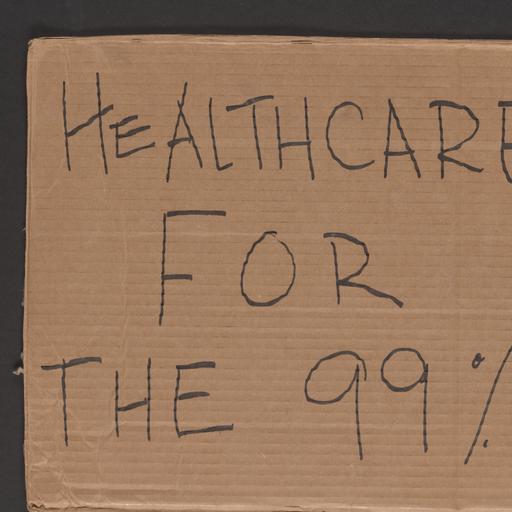 HEALTHCARE
FOR
THE 99%